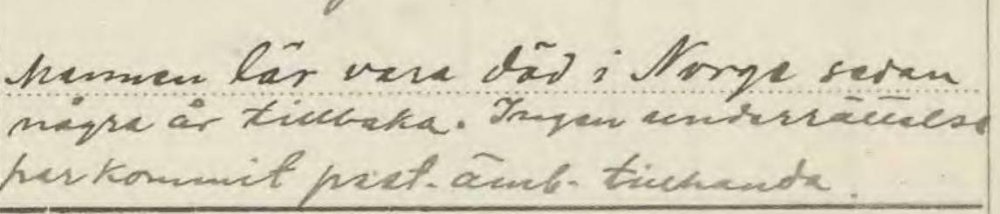 Mannen lär vara död i Norge sedan
några år tillbaka. Ingen underrättelse
har kommit past. ämb. tillhanda.